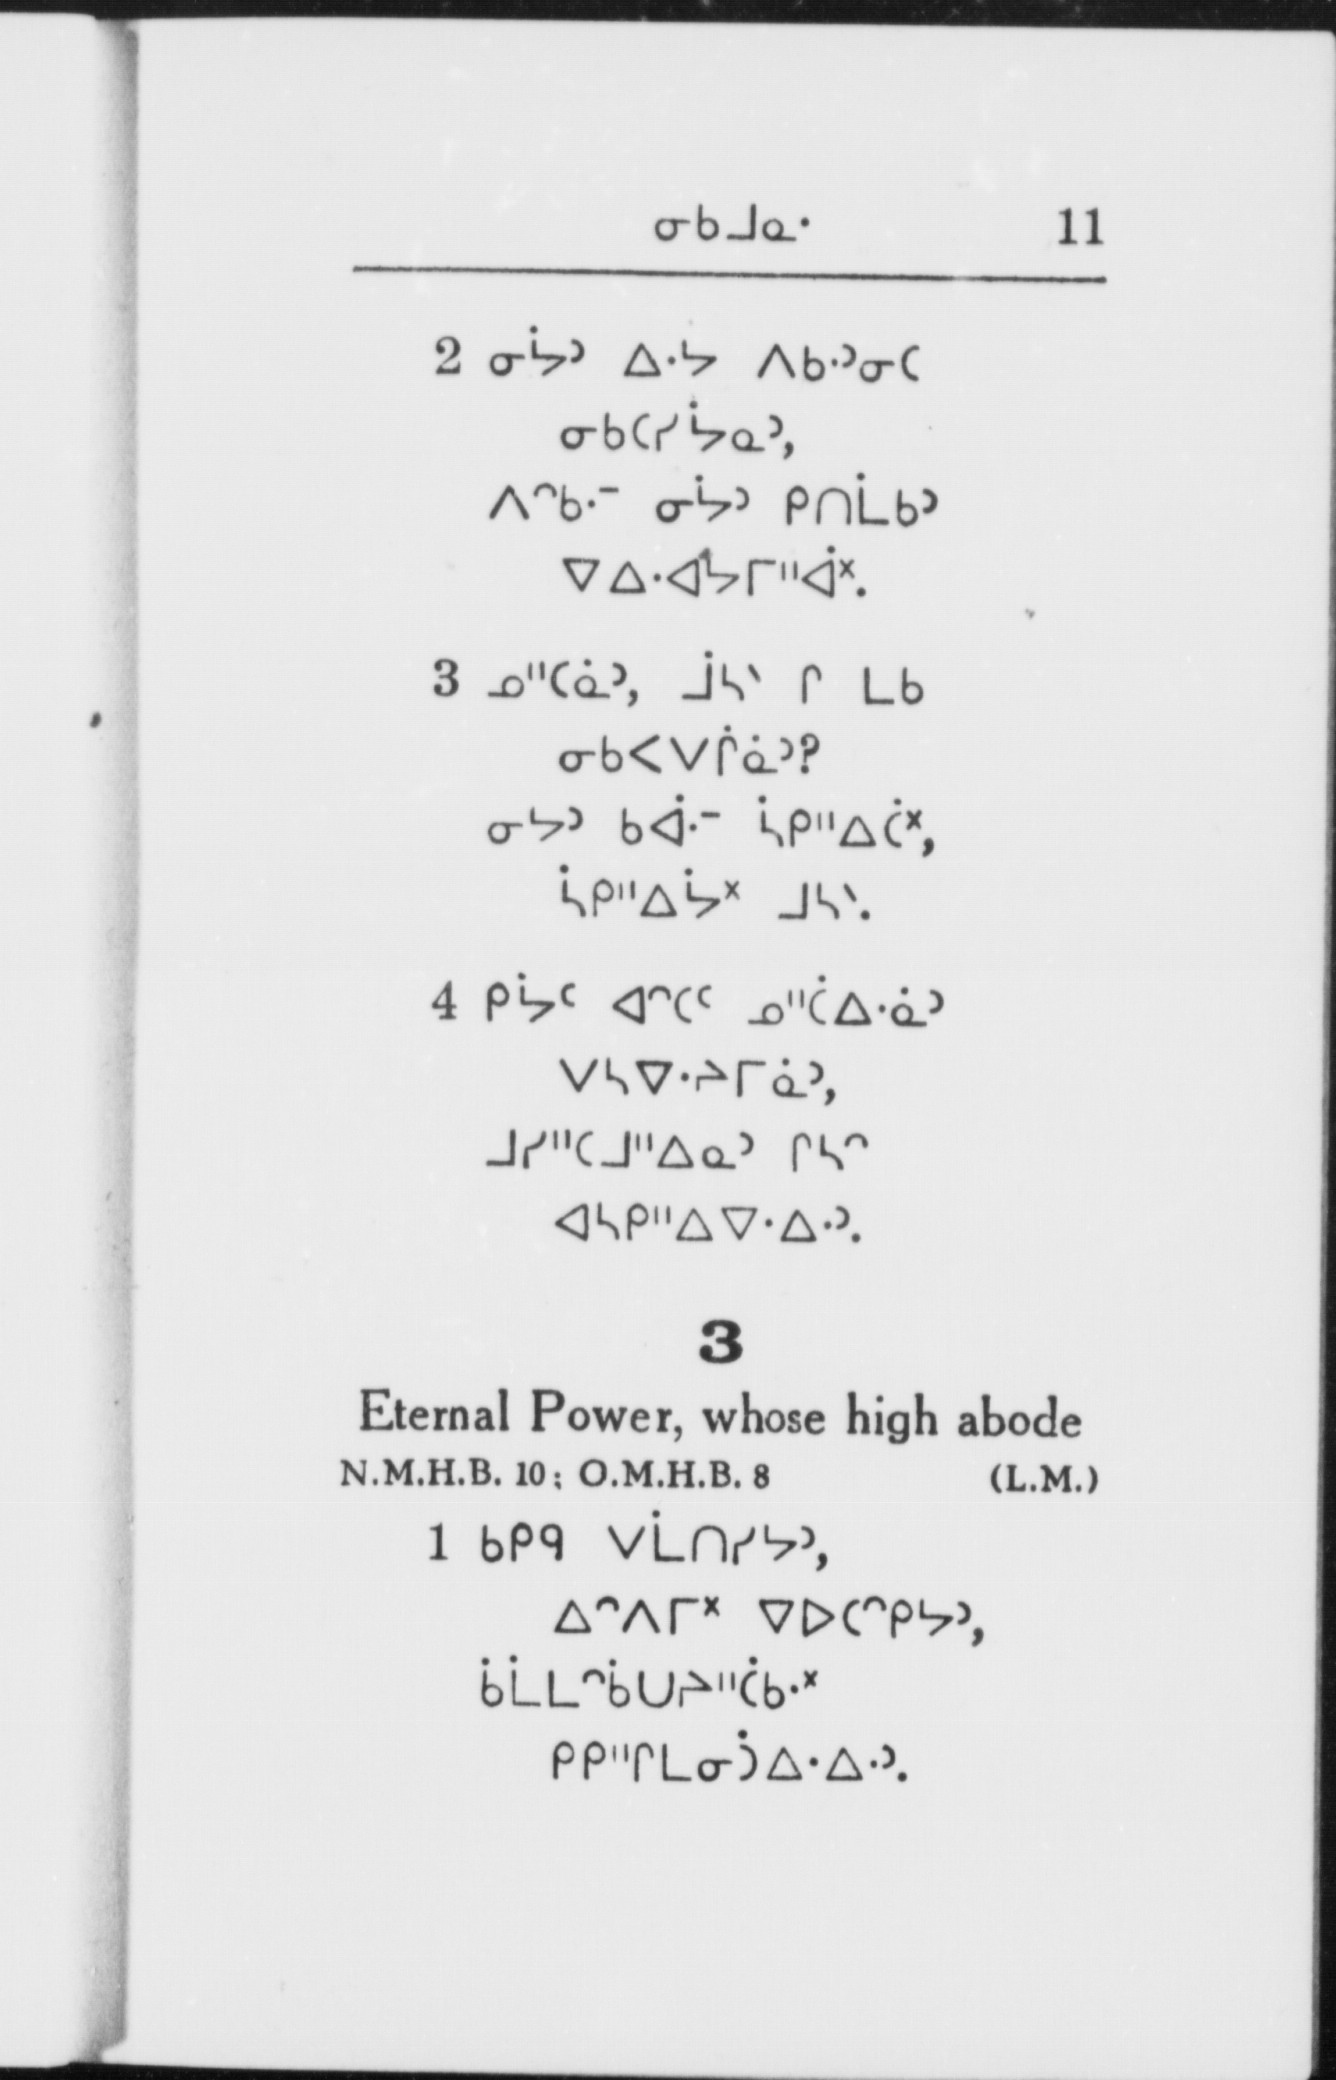 ᓂᑲᒧᓇᐧ 11
2 ᓂᔮᐣ ᐃᐧᔭ ᐱᑲᐧᐣᓂᑕ
ᓂᑲᑕᓯᔮᓇᐣ,
ᐱᐢᑲᐧᐨ ᓂᔮᐣ ᑭᑎᒫᑲᐣ
ᐁᐃᐧᐊᔭᒥᐦᐋᕽ.
3 ᓄᐦᑕᓈᐣ, ᒨᓴᐠ ᒋ ᒪᑲ
ᓂᑲᐸᐯᒌᓈᐣ?
ᓂᔭᐣ ᑲᐋᐧᐨ ᓵᑭᐦᐃᑖᕽ,
ᓵᑭᐦᐃᔮᕽ ᒧᓴᐠ.
4 ᑭᔮᑦ ᐊᐢᑕᑦ ᓄᐦᑖᐃᐧᓈᐣ
ᐯᓴᐁᐧᔨᒥᓈᐣ,
ᒧᓯᐦᑕᒧᐦᐃᓇᐣ ᒋᓴᐢ
ᐊᓴᑭᐦᐃᐁᐧᐃᐧᐣ.
3
Eternal Power, whose high abode
N.M.H.B. 10; O.M.H.B. 8 (L.M.)
1 ᑲᑭᑫ ᐯᒫᑎᓯᔭᐣ,
ᐃᐢᐱᒥᕽ ᐁᐅᑕᐢᑭᔭᐣ,
ᑳᒫᒪᐢᑳᑌᔨᐦᑖᑲᐧᕽ
ᑭᑭᐦᒋᒪᓂᑑᐃᐧᐃᐧᐣ.